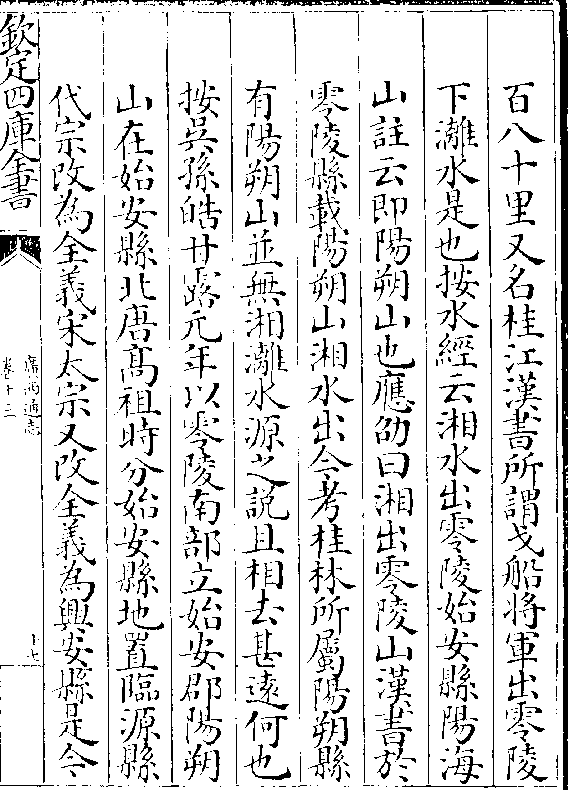 百八十里又名桂江漢書所謂戈船将軍出零陵
下灕水是也按水經云湘水出零陵始安縣陽海
山註云即陽朔山也應劭曰湘出零陵山漢書於
零陵縣載陽朔山湘水出今考桂林所屬陽朔縣
有陽朔山並無湘灕水源之說且相去甚遠何也
按吳孫皓甘露元年以零陵南部立始安郡陽朔
山在始安縣北唐高祖時分始安縣地置臨源縣
代宗改為全義宋太宗又改全義為興安縣是今
欽定四庫全書
廣西通志
卷十三
十七